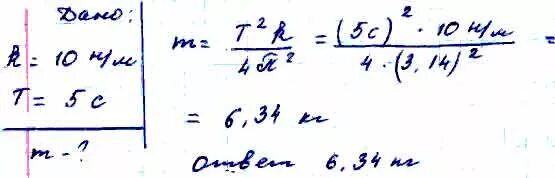 Дано:
k = 10 н/м
T = 5 с
m - ?
m = T² k / 4π² = (5с)² · 10 н/м / 4 · (3,14)² =
= 6,34 кг
ответ 6,34 кг